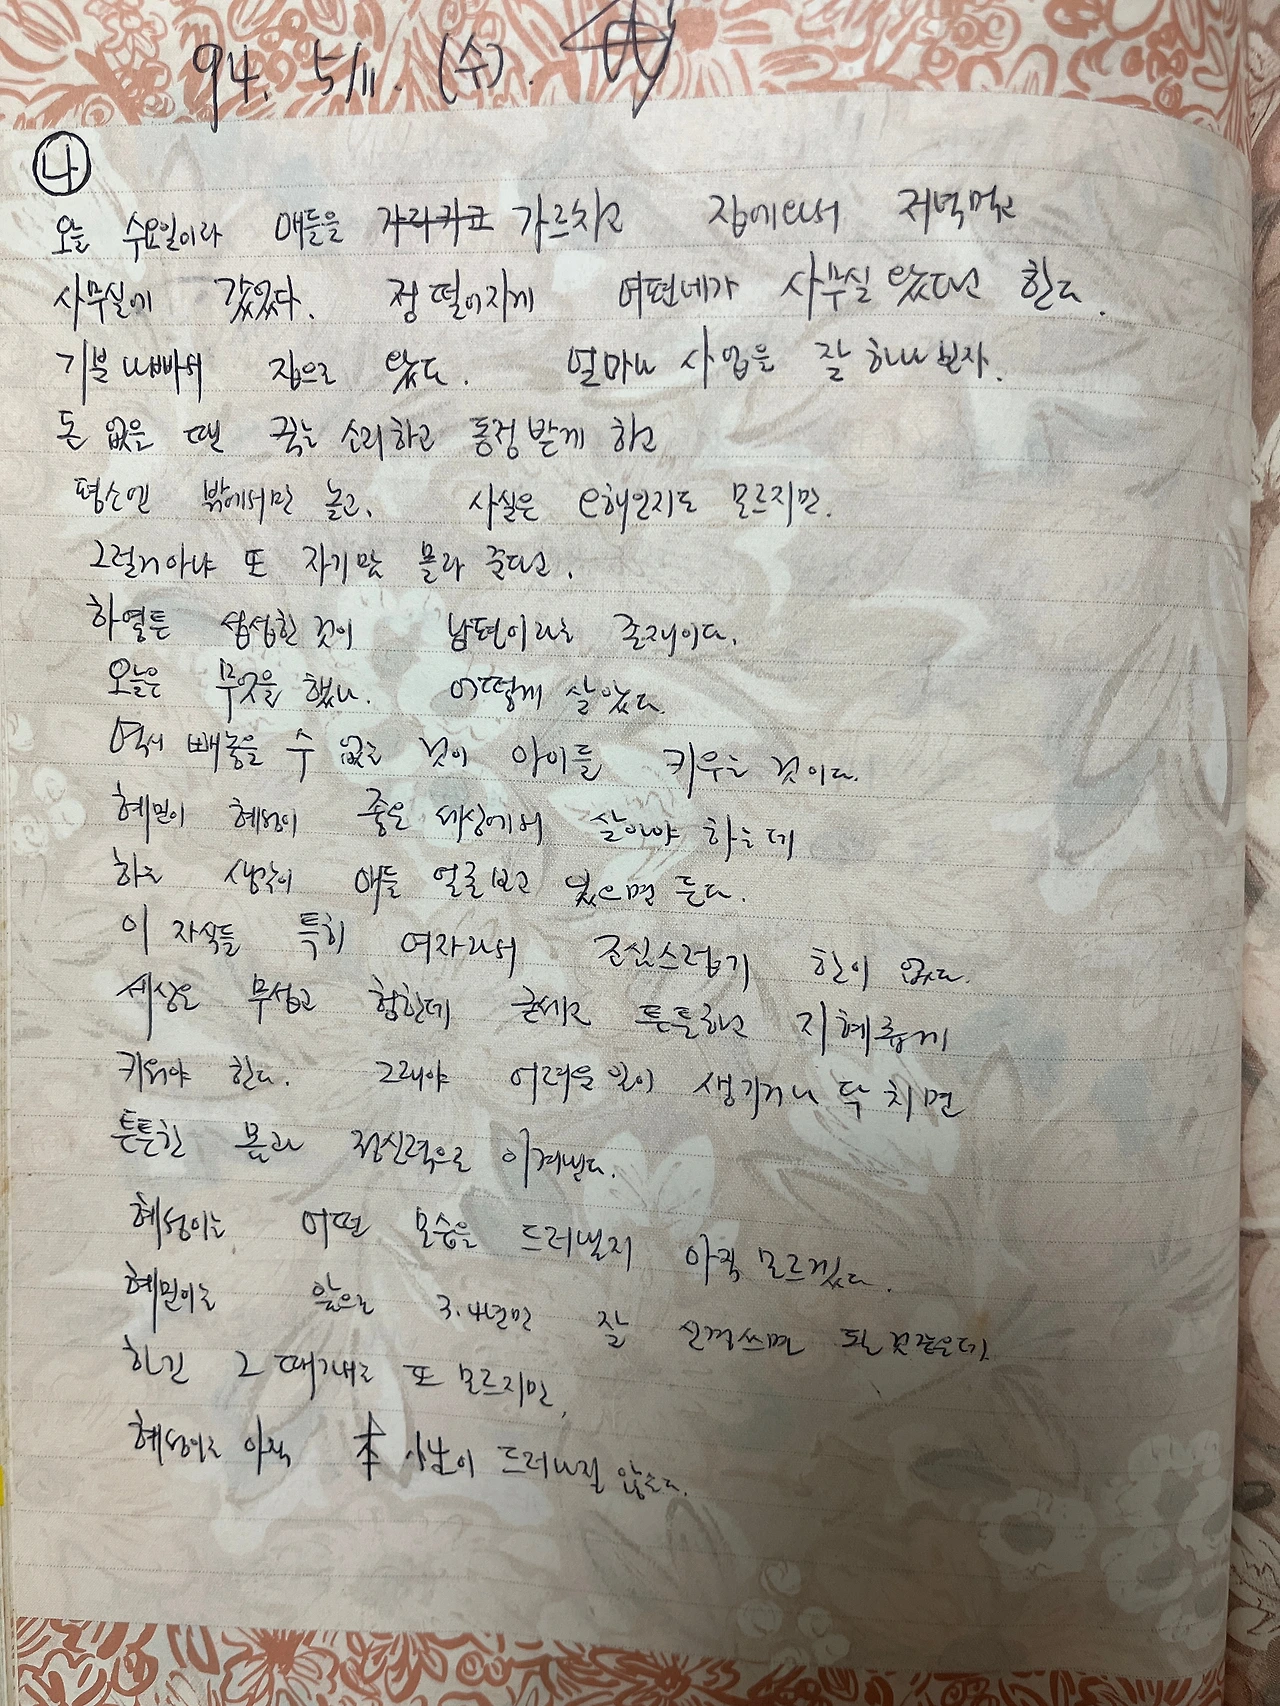 94. 5/11. (수).
나
오늘 수요일이라 애들을 가르치고 집에와서 저녁먹고
사무실에 갔었다. 정떨어지게 여편네가 사무실 왔다고 한다.
기분 나빠서 집으로 왔다. 얼마나 사업을 잘 하나 보자.
돈 없을 땐 죽는 소리하고 동정받게 하고
평소엔 밖에서만 놀고. 사실은 오해인지도 모르지만.
그럴거야 또 자기맘 몰라 준다고.
하여튼 섭섭한 것이 남편이라는 존재이다.
오늘은 무엇을 했나. 어떻게 살았다.
역시 빼놓을 수 없는 것이 아이들 키우는 것이다.
혜민이 혜성이 좋은 세상에서 살아야 하는데
하는 생각이 애들 얼굴보고 있으면 든다.
이 자식들 특히 여자라서 조심스럽기 한이 없다.
세상은 무섭고 험한데 굳세고 튼튼하고 지혜롭게
키워야 한다. 그래야 어려운 일이 생기거나 닥치면
튼튼한 몸과 정신력으로 이겨낸다.
혜성이는 어떤 모습을 드러낼지 아직 모르겠다.
혜민이는 앞으로 3.4년만 잘 신경쓰면 될것같은데.
하긴 그때가봐도 또 모르지만,
혜성이는 아직 本 成이 드러나질 않는다.